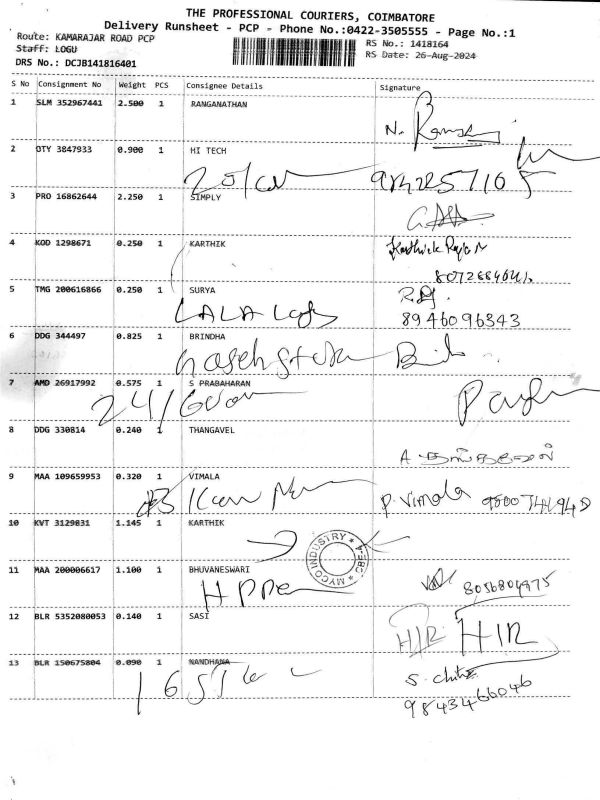 THE PROFESSIONAL COURIERS, COIMBATORE
Delivery Runsheet - PCP - Phone No.:0422-3505555 - Page No.:1
Route: KAMARAJAR ROAD PCP
RS No.: 1418164
Staff: LOGU
RS Date: 26-Aug-2024
DRS No.: DCJB141816401
S No Consignment No Weight PCS Consignee Details Signature
1 SLM 352967441 2.500 1 RANGANATHAN
N.
2 OTY 3847933 0.900 1 HI TECH
3 PRO 16862644 2.250 1 SIMPLY
4 KOD 1298671 0.250 1 KARTHIK
Karthick Raja N
5 TMG 200616866 0.250 1 SURYA
LALA
8946096343
6 DDG 344497 0.825 1 BRINDHA
7 AMD 26917992 0.575 1 S PRABAHARAN
24/
8 DDG 330814 0.240 1 THANGAVEL
9 MAA 109659953 0.320 1 VIMALA
P. Vimala
10 KVT 3129831 1.145 1 KARTHIK
MYCO INDUSTRY * CBE-4 *
11 MAA 200006617 1.100 1 BHUVANESWARI
8056804975
12 BLR 5352080053 0.140 1 SASI
13 BLR 150675804 0.090 1 NANDHANA
9843466046